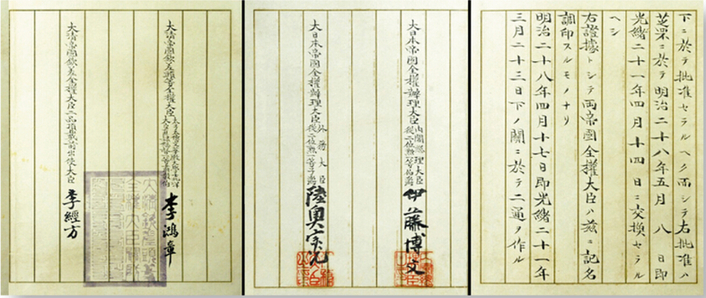 下ニ於テ批准セラルヘク而シテ右批准ハ
芝罘ニ於テ明治二十八年五月 八 日即
光緒二十一年四月十四 日ニ交換セラル
ヘシ
右證據トシテ両帝國全權大臣ハ茲ニ記名
調印スルモノナリ
明治二十八年四月十七日即光緒二十一年
三月二十三日下ノ關ニ於テ二通ヲ作ル
大日本帝國全權辦理大臣 内閣總理大臣 從二位勲一等伯爵 伊藤博文
大日本帝國全權辦理大臣 外務大臣 從二位勲一等子爵 陸奥宗光
大清帝國欽差頭等全權大臣 李鴻章
大清帝國欽差全權大臣二品頂戴前出使大臣 李經方